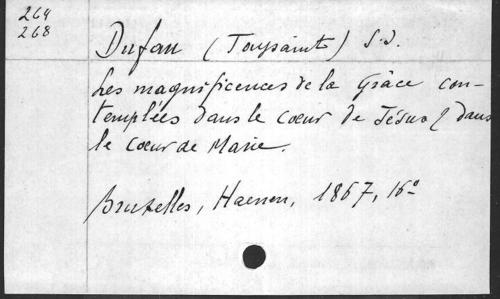 264
268
Dufau (Toussaint) S.J.
Les magnificences de la Grâce con-
templées dans le cœur de Jésus & dans
le cœur de Marie.
Bruxelles, Haenen, 1867, 16º